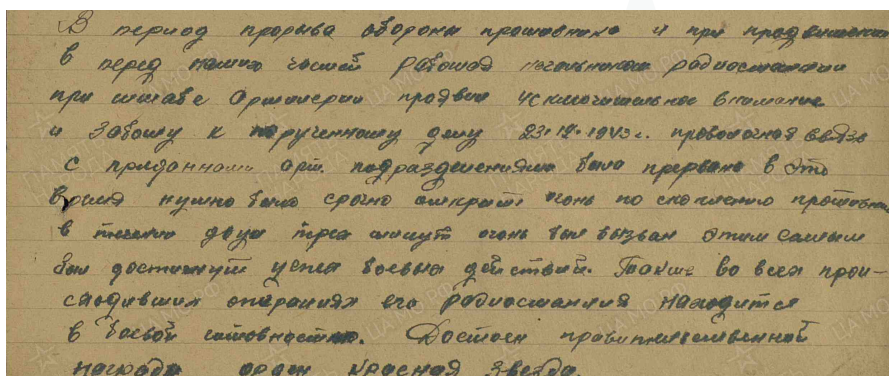 В период прорыва обороны противника и при продвижении
в перед наших частей работая начальником радиостанции
при штабе Артилерии проявил исключительное внимание
и заботу к порученному делу 23.12.1943 г. проволочная связь
с приданными арт. подразделениями была прервана в это
время нужно было срочно открыть огонь по скоплению противника
в течении двух трех минут огонь был вызван этим самым
был достигнут успех боевых действий. Также во всех прои-
сходивших операциях его радиостанция находится
в боевой готовностью. Достоен правительственной
награды орден Красная звезда.
ЦАМО РФ